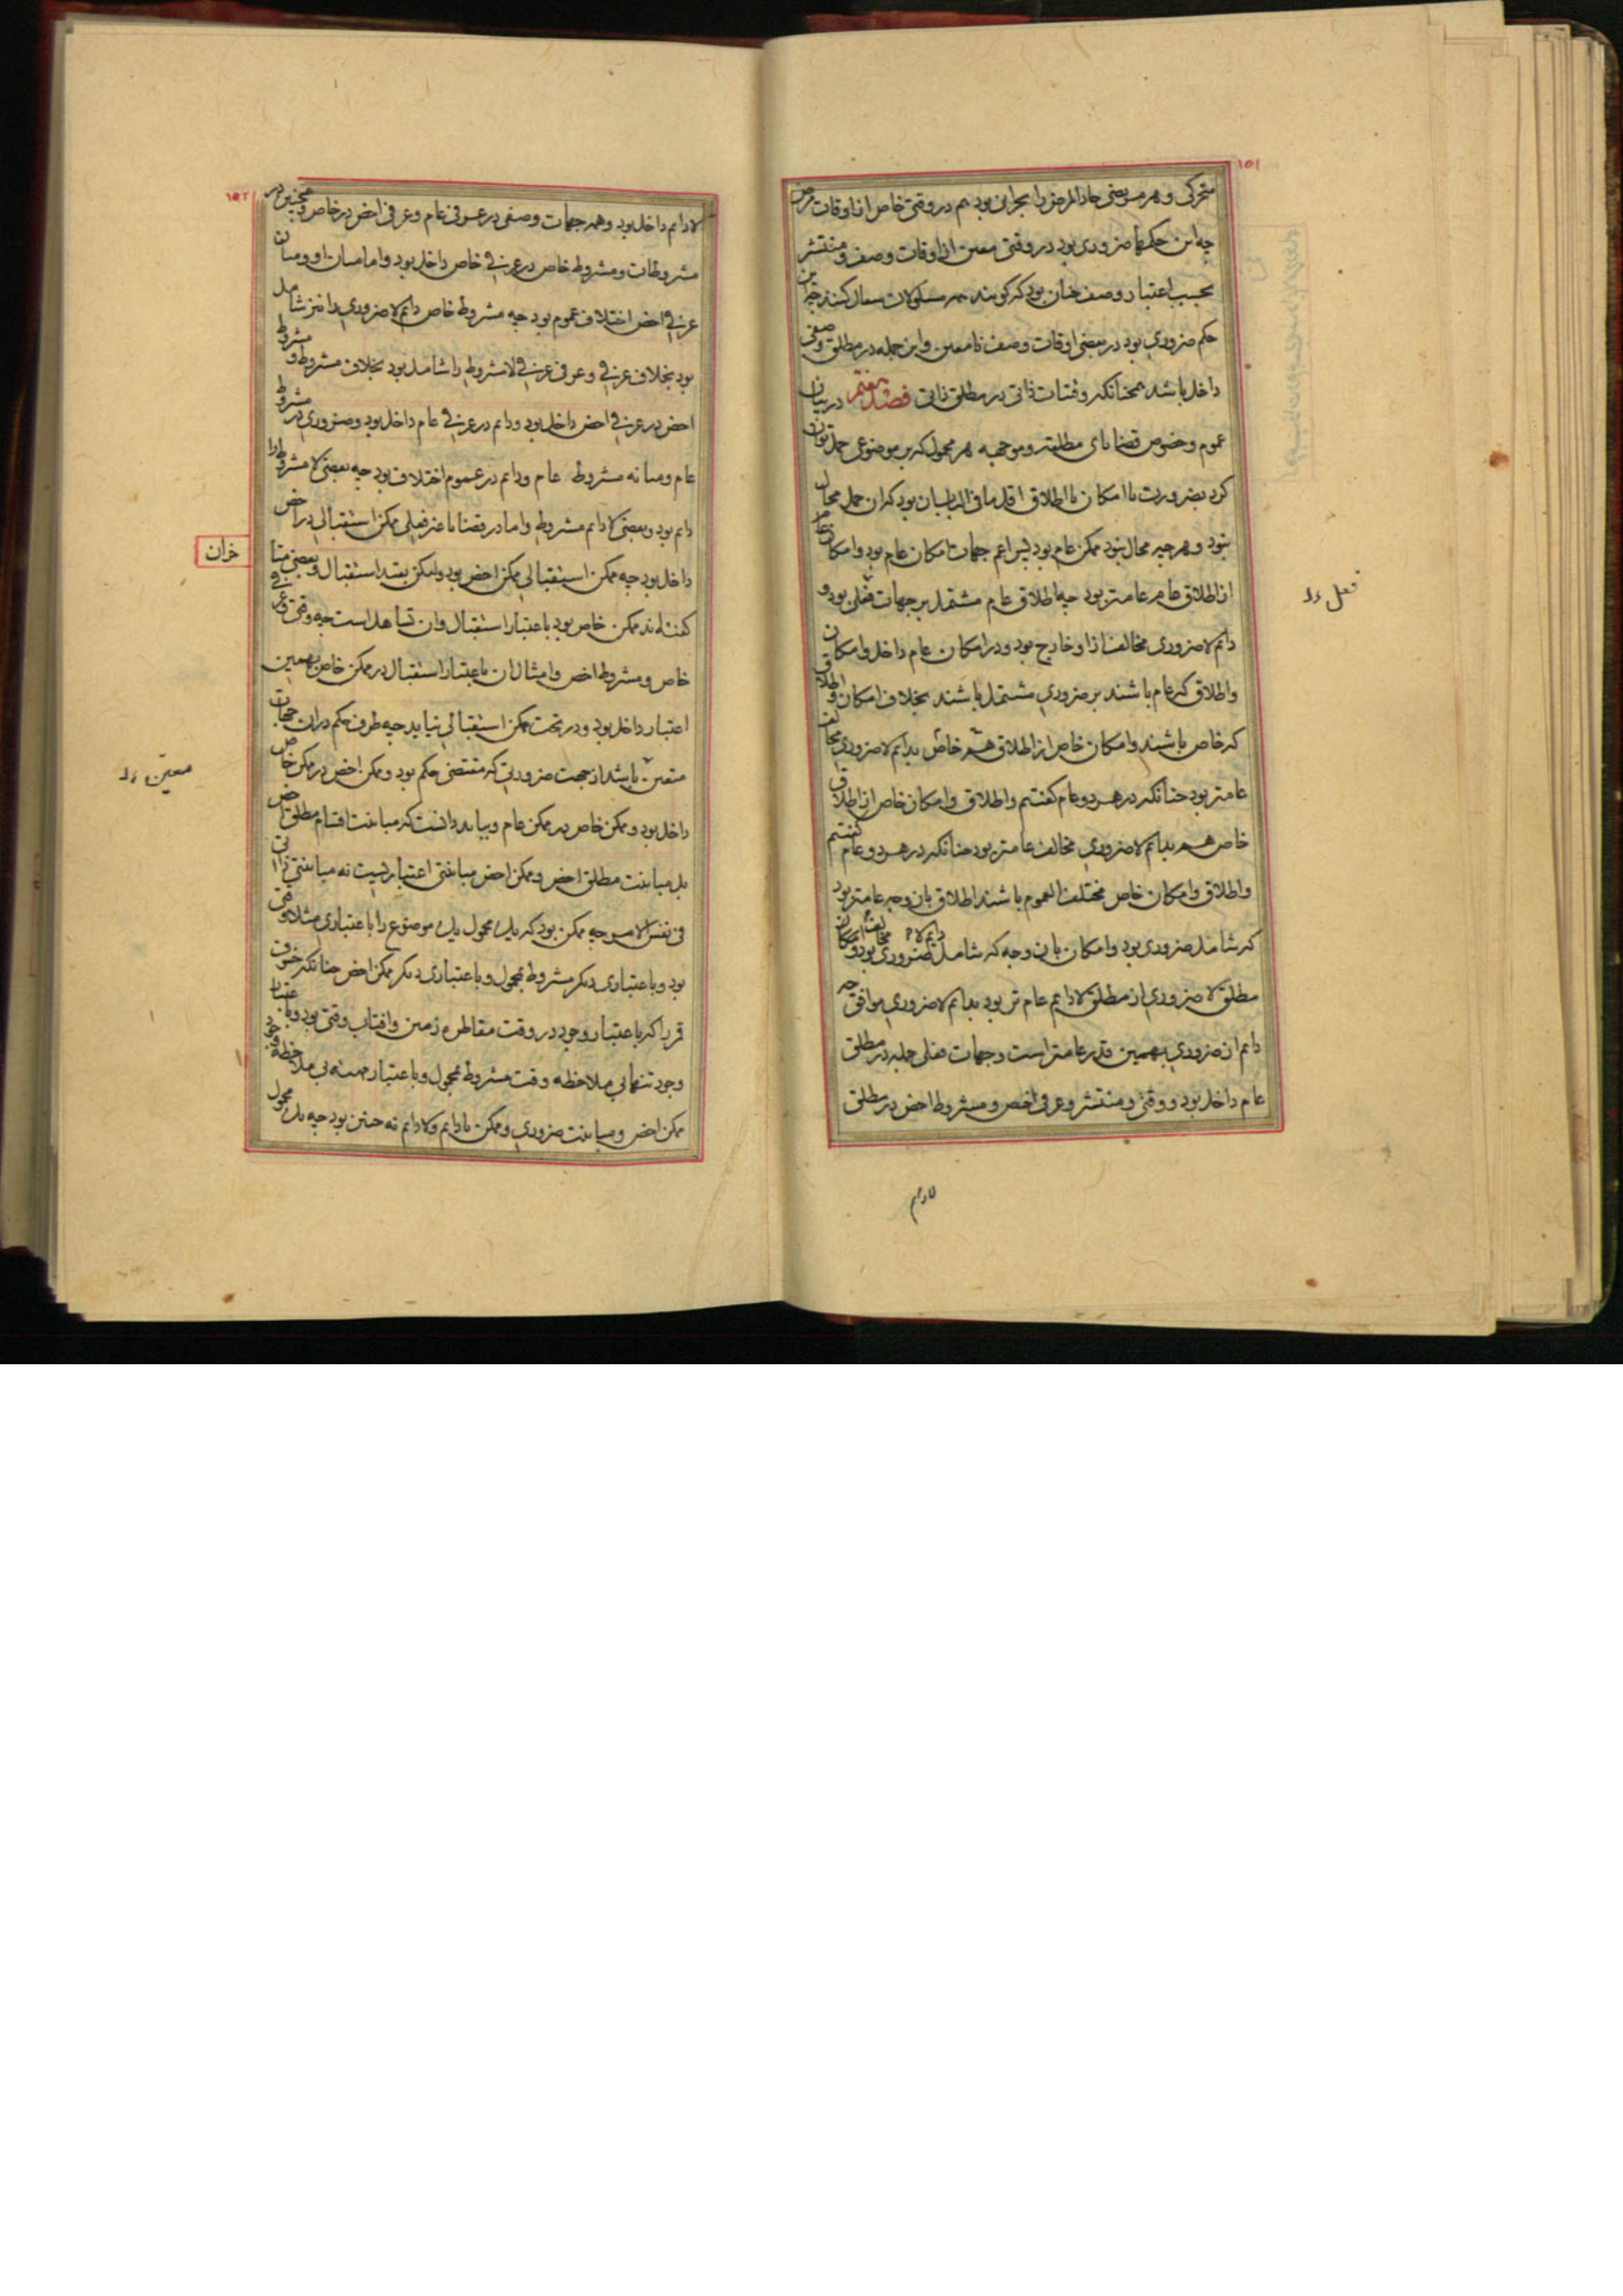 ١٥١
متحرکی و هر مریضی حاد المرض را بحرانی بود هم در وقتی خاص از اوقات مرض
چه این حکمها ضروری بود در وقتی معین از اوقات وصف و منتشر
بحسب اعتبار وصف چنان بود که گویند همه مسلولان سعال کنند چه این
حکم ضروری بود در بعضی اوقات وصف نامعین و این جمله در مطلق وصفی
داخل باشد همچنانکه وقتیات ذاتی در مطلق ذاتی فصل هفتم در بیان
عموم و خصوص قضایای مطلقه و موجهه هر محمول که بر موضوعی حمل توان
کرد بضرورت یا امکان یا اطلاق اقل ما فی الباب آن بود که آن حمل محال
نبود و هر چه محال نبود ممکن عام بود پس اعم جهات امکان عام بود و امکان عام
از اطلاق عام عامتر بود چه اطلاق عام مشتمل بر جهات فعلی بود و
دائم لاضروری مخالف ازا و خارج بود و در امکان عام داخل و امکان
و اطلاق که عام باشند بر ضروری مشتمل باشند بخلاف امکان و اطلاق
که خاص باشند و امکان خاص از اطلاق هم خاص بدائم لاضروری مخالف
عامتر بود چنانکه در هر دو عام گفتیم و اطلاق و امکان خاص از اطلاق
خاص هم بدائم لاضروری مخالف عامتر بود چنانکه در هر دو عام گفتیم
و اطلاق و امکان خاص مختلف العموم باشند اطلاق بان وجه عامتر بود
که شامل ضروری بود و امکان بان وجه که شامل دائم لا ضروری مخالف بود و امکان
مطلق لا ضروری از مطلق لادائم عام تر بود بدائم لاضروری موافق چه
دائم از ضروری بهمین قدر عامتر است و جهات فعلی جمله در مطلق
عام داخل بود و وقتی و منتشر و عرفی اخص و مشروط اخص در مطلق
لادائم
فعل
١٥٢
لادائم داخل بود و همه جهات وصفی در عرفی عام و عرفی اخص در خاص و همچنین در
مشروطات و مشروط خاص در عرفی خاص داخل بود و اما میان او و میان
عرفی اخص اختلاف عموم بود چه مشروط خاص دائم لاضروری را نیز شامل
بود بخلاف عرفی و عرفی عرفی لامشروط را شامل بود بخلاف مشروط و مشروط
اخص در عرفی اخص داخل بود و دائم در عرفی عام داخل بود و ضروری در مشروط
عام و میانه مشروط عام و دائم در عموم اختلاف بود چه بعضی لا مشروط را
دائم بود و بعضی لادائم مشروط و اما در قضایا غیر فعلی ممکن استقبالی در اخص
داخل بود چه ممکن استقبالی ممکن اخص بود و لیکن بقید استقبال و بعضی متأخران
گفته‌اند ممکن خاص بود باعتبار استقبال و آن تساهل است چه وقتی و عرفی
خاص و مشروط اخص و امثال آن باعتبار استقبال در ممکن خاص بهمین
اعتبار داخل بود و در تحت ممکن استقبالی نیاید چه طرف حکم در آن جهات
متعین باشد از جهت ضرورتی که مقتضی حکم بود و ممکن اخص در ممکن خاص
داخل بود و ممکن خاص در ممکن عام و بباید دانست که مباینت اقسام مطلق اخص
بل مباینت مطلق اخص و ممکن اخص مباینتی اعتباریست نه مباینتی ذاتی
فی نفس الامر چه ممکن بود که یک محمول یک موضوع را باعتباری مثلا وقتی
بود و باعتباری دیگر مشروط بمحمول و باعتباری دیگر ممکن اخص چنانکه خسوف
قمر را که باعتبار وجود در وقت مقاطره زمین و آفتاب وقتی بود و باعتبار
وجود تنها بی ملاحظه وقت مشروط بمحمول و باعتبار مهیت بی ملاحظه وجود
ممکن اخص و مباینت ضروری و ممکن یا دائم و لادائم نه چنین بود چه یک محمول
معین